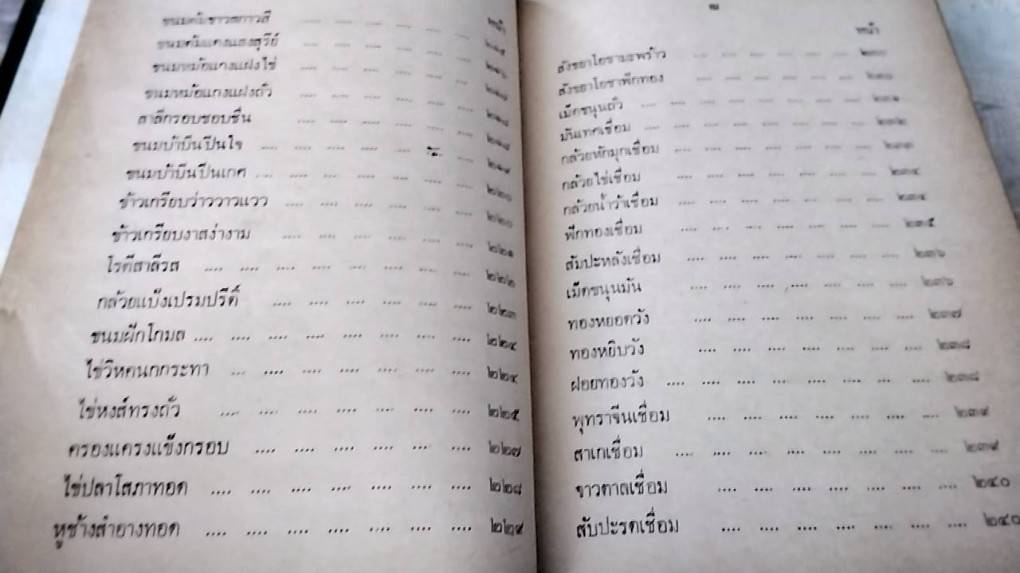 หน้า
ขนมต้มขาวสกาวสี .... .... .... .... .... .... .... ๒๑๕
ขนมต้มแดงแสงสุรีย์ .... .... .... .... .... .... .... ๒๑๖
ขนมหม้อแกงแฝงไข่ .... .... .... .... .... .... .... ๒๑๗
ขนมหม้อแกงแฝงถั่ว .... .... .... .... .... .... .... ๒๑๘
สาลี่กรอบชอบชื่น .... .... .... .... .... .... .... ๒๑๘
ขนมบ้าบิ่นปีนใจ .... .... .... .... .... .... .... ๒๑๙
ขนมบ้าบิ่นปีนเกศ .... .... .... .... .... .... .... ๒๒๐
ข้าวเกรียบว่าววาวแวว .... .... .... .... .... .... .... ๒๒๐
ข้าวเกรียบงาสง่างาม .... .... .... .... .... .... .... ๒๒๑
โรตีสาลีรส .... .... .... .... .... .... .... .... ๒๒๒
กล้วยแป้งเปรมปรีดิ์ .... .... .... .... .... .... .... ๒๒๓
ขนมฝักโกมล .... .... .... .... .... .... .... .... ๒๒๔
ไข่วิหคนกกระทา ... .... .... .... .... .... .... .... ๒๒๔
ไข่หงส์ทรงถั่ว .... .... .... .... .... .... .... .... ๒๒๕
ครองแครงแข็งกรอบ .... .... .... .... .... .... .... ๒๒๗
ไข่ปลาโสภาทอด .... .... .... .... .... .... .... .... ๒๒๘
หูช้างสำอางทอด .... .... .... .... .... .... .... .... ๒๒๙
หน้า
สังขยาโอชามะพร้าว .... .... .... .... .... .... ๒๓๐
สังขยาโอชาฟักทอง .... .... .... .... .... .... ๒๓๐
เม็ดขนุนถั่ว .... .... .... .... .... .... .... ๒๓๑
มันเทศเชื่อม .... .... .... .... .... .... .... ๒๓๒
กล้วยหักมุกเชื่อม .... .... .... .... .... .... ๒๓๓
กล้วยไข่เชื่อม .... .... .... .... .... .... ๒๓๔
กล้วยน้ำว้าเชื่อม .... .... .... .... .... .... ๒๓๔
ฟักทองเชื่อม .... .... .... .... .... .... ๒๓๕
สัมปะหลังเชื่อม .... .... .... .... .... .... ๒๓๖
เม็ดขนุนมัน .... .... .... .... .... .... .... ๒๓๖
ทองหยอดวัง .... .... .... .... .... .... ๒๓๗
ทองหยิบวัง .... .... .... .... .... .... ๒๓๘
ฝอยทองวัง .... .... .... .... .... .... .... ๒๓๘
พุทราจีนเชื่อม .... .... .... .... .... .... ๒๓๙
สาเกเชื่อม .... .... .... .... .... .... .... ๒๓๙
จาวตาลเชื่อม .... .... .... .... .... .... ๒๔๐
สับปะรดเชื่อม .... .... .... .... .... .... ๒๔๐